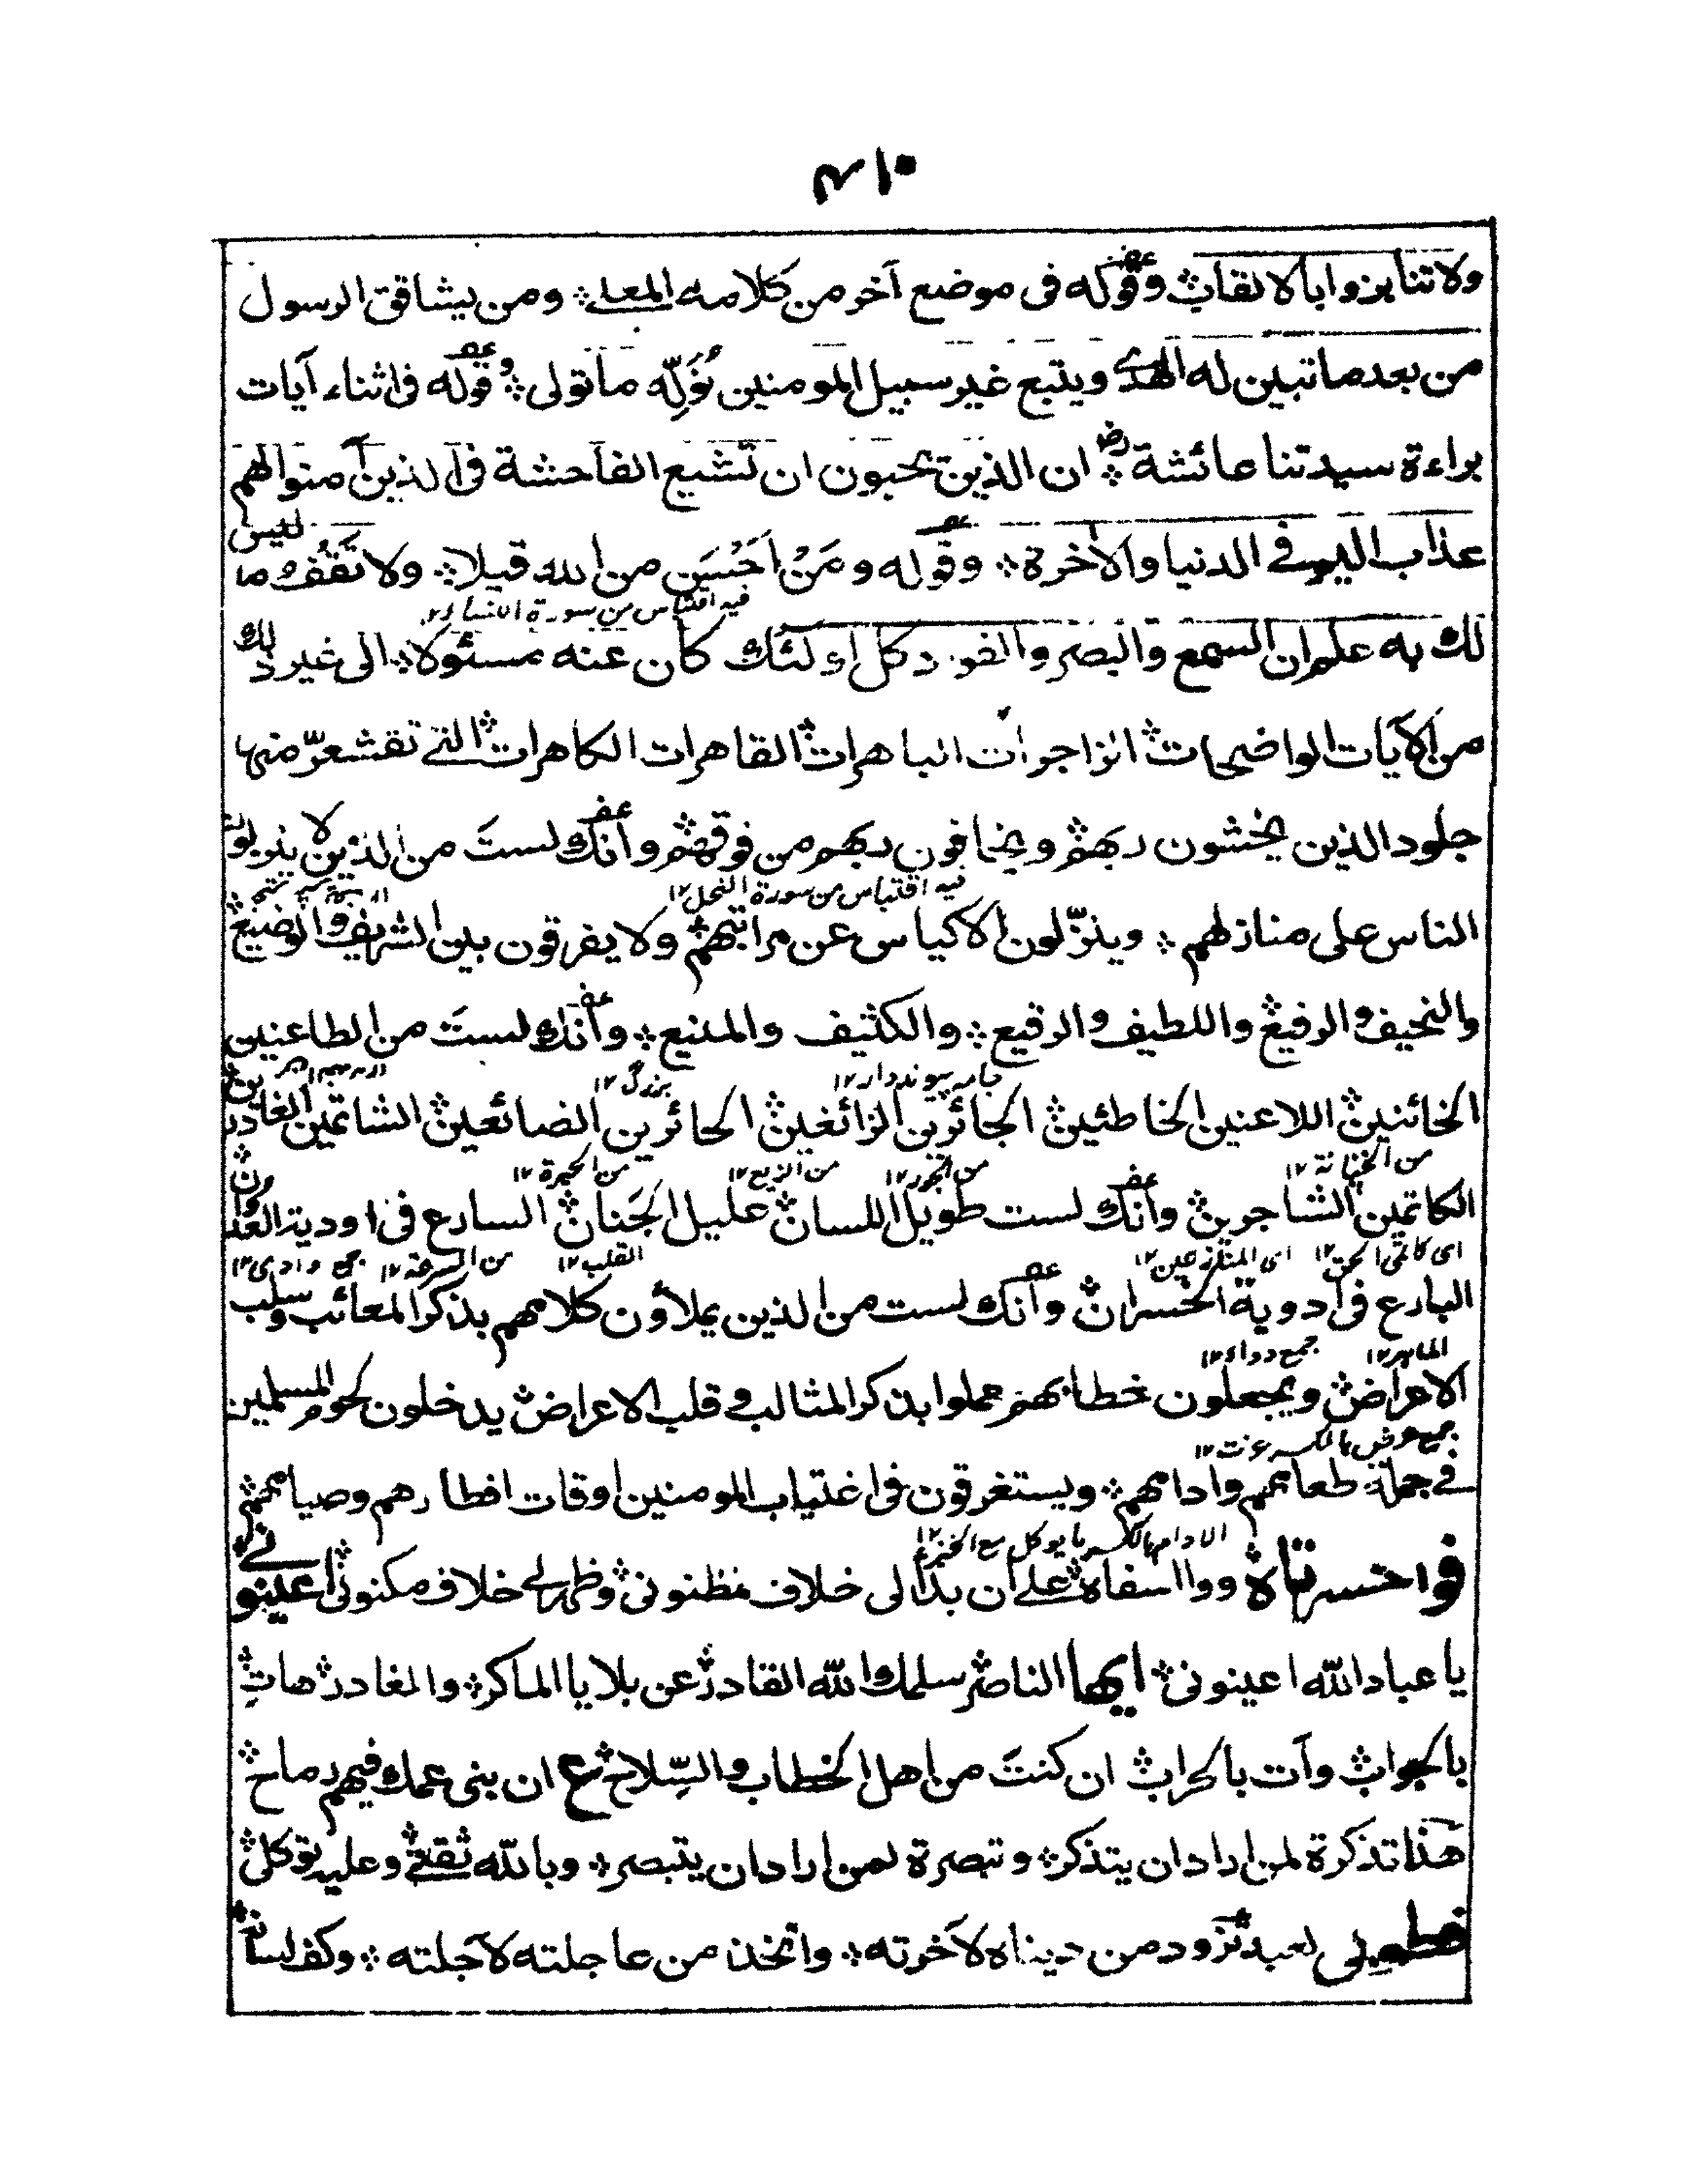 ولا تنابزوا بالالقاب؞ وقوله فى موضع آخر من كلامه المعلے؞ ومن يشاقق الرسول
من بعد ما تبين له الهدى ويتبع غير سبيل المومنين نُوَلِّه ما تولى؞ وقوله فى اثناء آيات
براءة سيدتنا عائشة؞ ان الذين يحبون ان تشيع الفاحشة فى الذين آمنوا لهم
عذاب اليم فے الدنيا والآخرة؞ وقوله ومَنْ اَحْسَن من الله قيلا؞ ولا تَقْفُ ما ليس
فيه اقتباس من سورة النساء ١٢
لك به علم ان السمع والبصر والفوءد كل اولئك كان عنه مسئولا؞ الى غير ذلك
من الآيات الواضحات؞ الزاجرات الباهرات؞ القاهرات الكاهرات؞ التے تقشعرّ منها
جلود الذين يخشون ربهم؞ ويخافون ربهم من فوقهم؞ وانك لستَ من الذين لا ينزلون
فيه اقتباس من سورة النحل ١٢
الناس على منازلهم؞ وينزّلون الاكياس عن مراتبهم؞ ولا يفرقون بين الشريف والوضيع؞
والنحيف والرفيع؞ واللطيف والرقيع؞ والكثيف والمنيع؞ وانك لستَ من الطاعنين
جامه پیونددار ١٢ بزرگ ١٢
الخائنين؞ اللاعنين الخاطئين؞ الجائرين الزائغين؞ الحائرين الضائعين؞ الشاتمين الغادرين؞
من الخيانة ١٢ من الجور ١٢ من الزيغ ١٢ من الحيرة ١٢
الكاتمين الشاجرين؞ وانك لست طويل اللسان؞ عليل الجَنان؞ السارع فى اودية العدوان؞
اى كاتمى الحق ١٢ اى المتنازعين ١٢ القلب ١٢ من السرعة ١٢ جمع وادى ١٢
البارع فى ادوية الخسران؞ وانك لست من الذين يملأون كلامهم بذكر المعائب وسلب
الماهر ١٢ جمع دواء ١٢
الاعراض؞ ويجعلون خطابهم مملوا بذكر المثالب وقلب الاعراض؞ يدخلون لحوم المسلمين
جمع عرض بالكسر عزت ١٢
فے جملة طعامهم وادامهم؞ ويستغرقون فى اغتياب المومنين اوقات افطارهم وصيامهم؞
الادام بالكسر ما يوكل مع الخبز ١٢
فواحسرتاه؞ ووااسفاه؞ على ان بدا لى خلاف مظنونى؞ وظهر لے خلاف مكنونى؞ اعينونے؞
يا عباد الله اعينونى؞ ايها الناصر؞ سلمك الله القادر؞ عن بلايا الماكر؞ والغادر؞ هاتِ؞
بالجواب؞ وآت بالحراب؞ ان كنتَ من اهل الخطاب والسِّلاح؞ ع ان بنى عمك فيهم رماح؞
هذا تذكرة لمن اراد ان يتذكر؞ وتبصرة لمن اراد ان يتبصر؞ وبالله ثقتے؞ وعليه توكلى؞
فطوبى لعبد تزود من ديناه لآخرته؞ واتخذ من عاجلته لآجلته؞ وكف لسانه؞